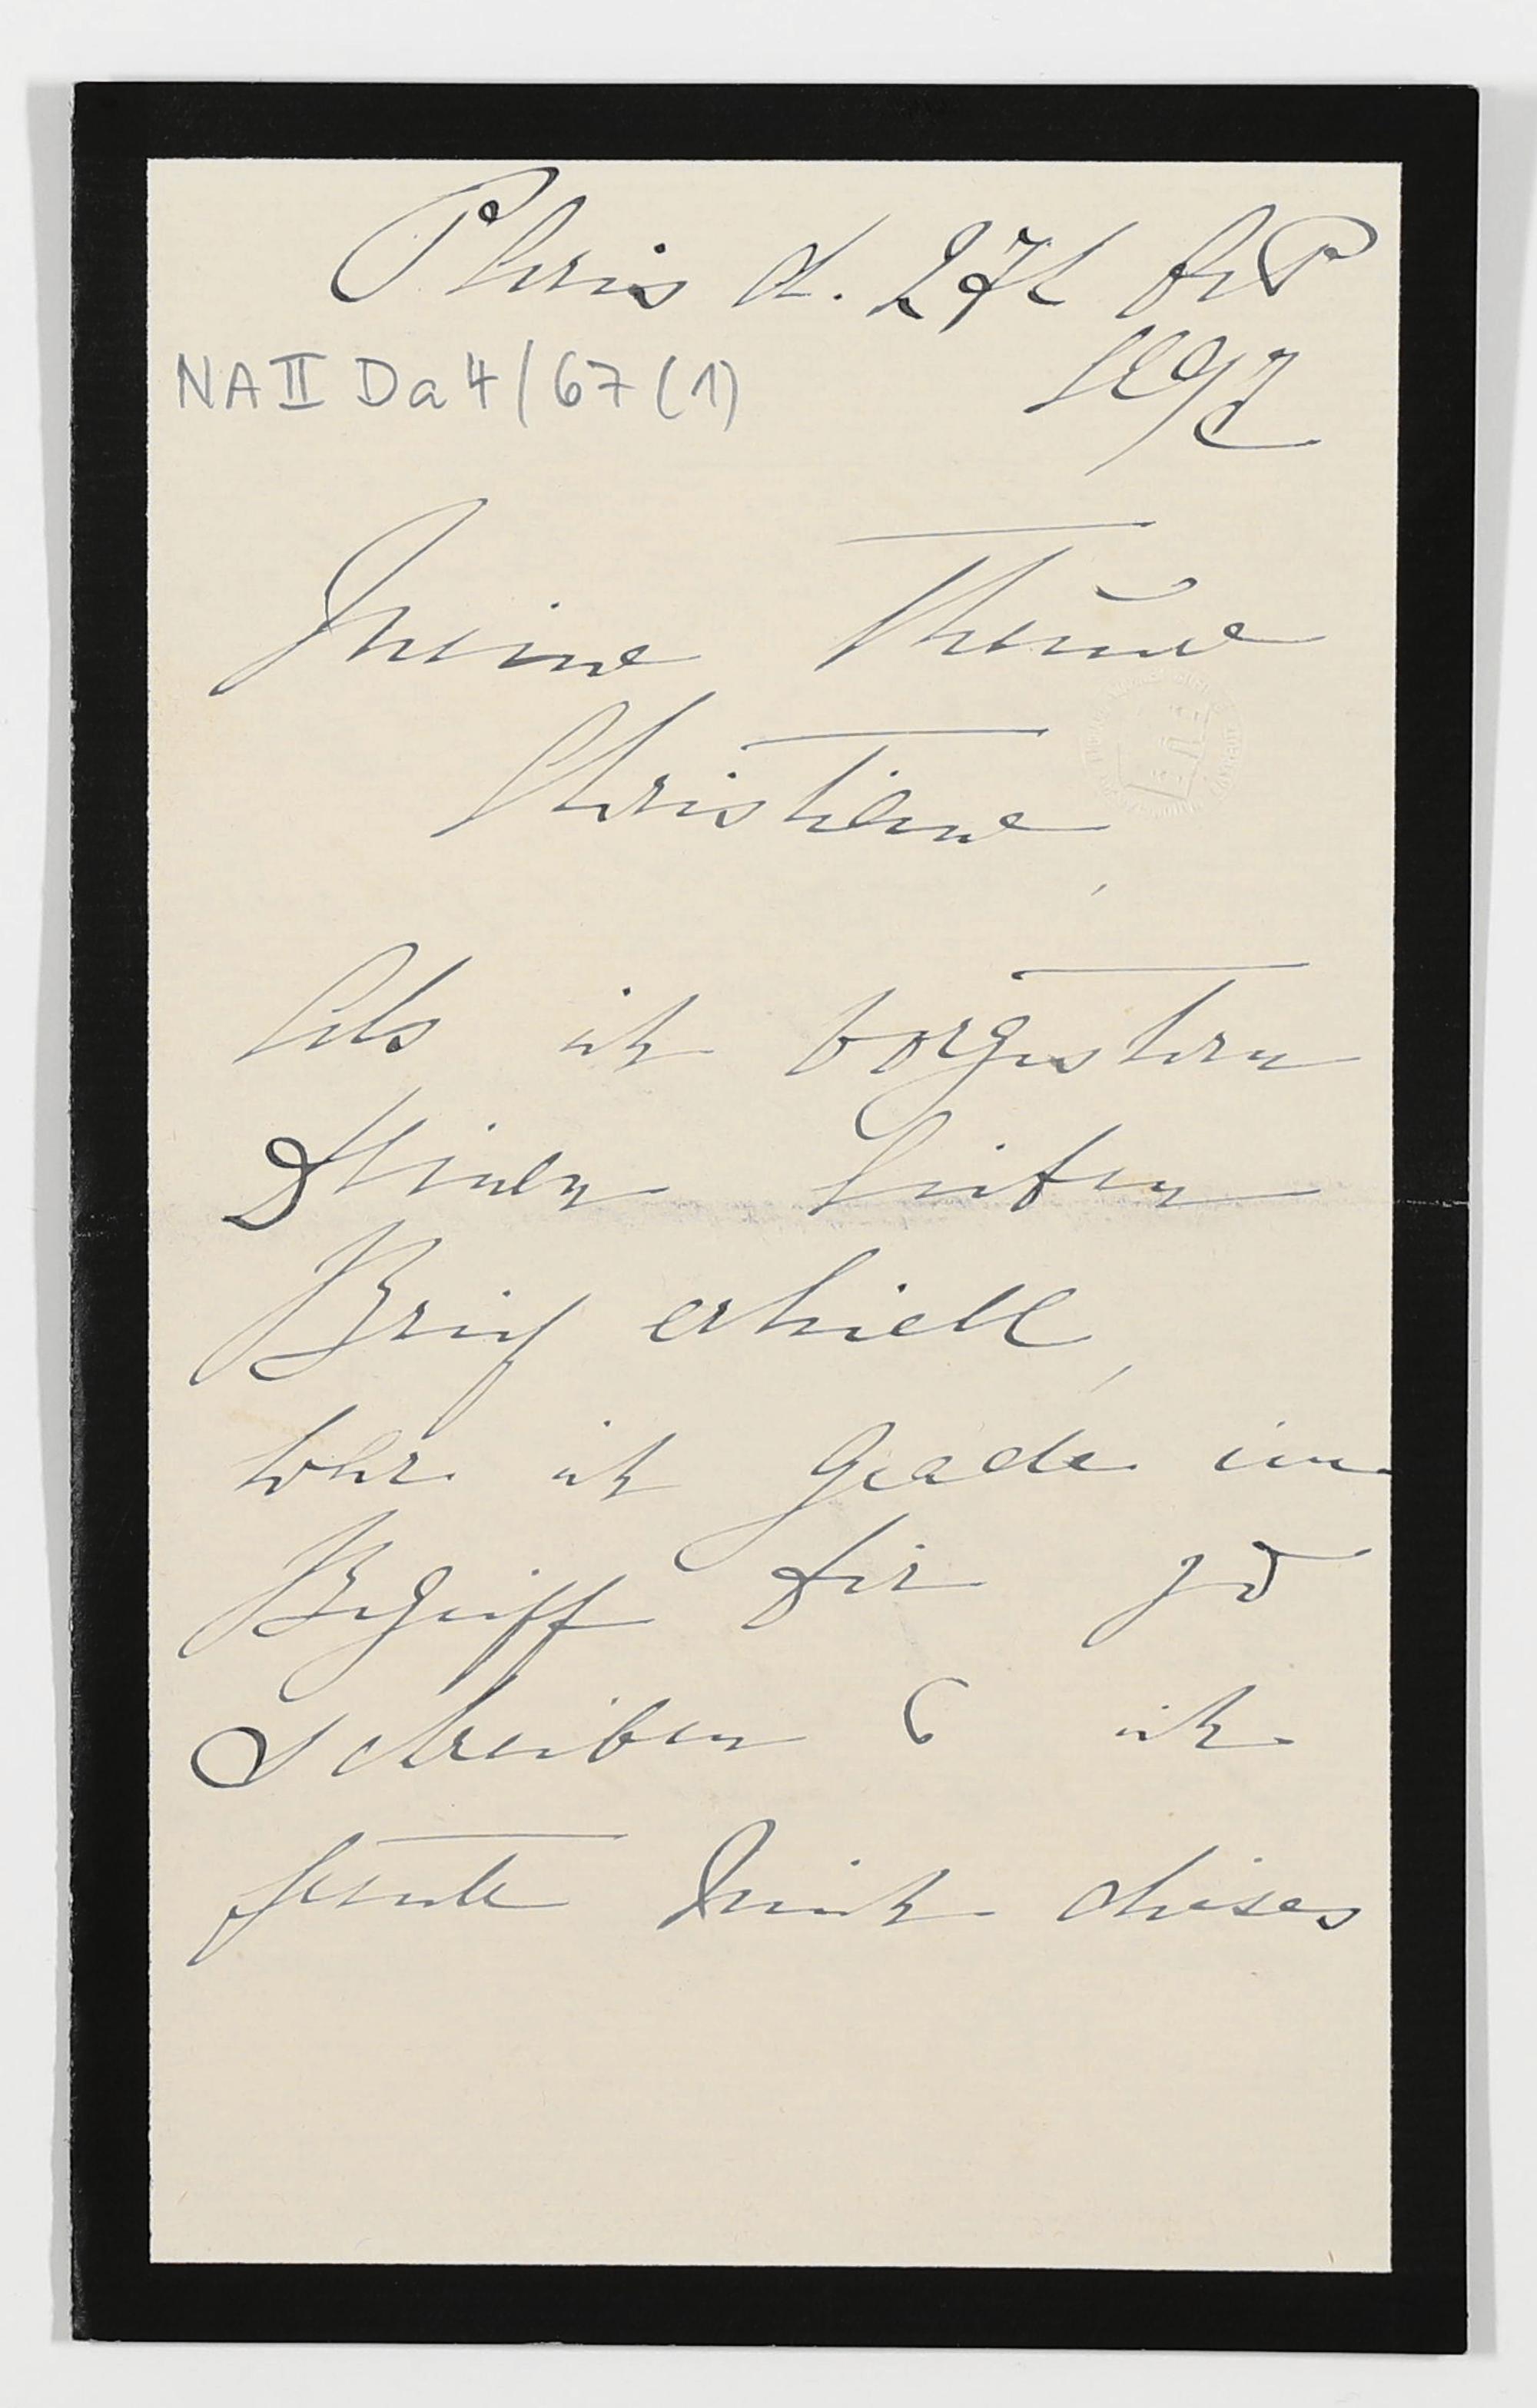 Paris d. 27t Sept
1897
NA II Da 4/67 (1)
Meine Theure
Christiane,
Als ich vorgestern
Deinen lieben
Brief erhielt,
war ich grade im
Begriff Dir zu
schreiben & ich
freute mich dieses